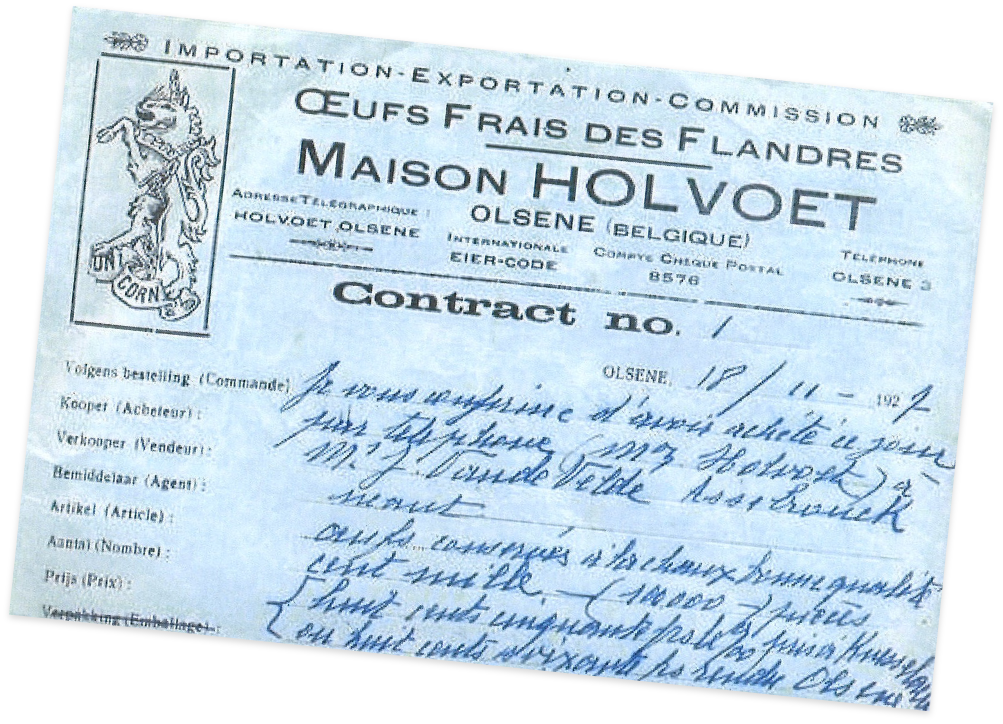 IMPORTATION-EXPORTATION-COMMISSION
ŒUFS FRAIS DES FLANDRES
MAISON HOLVOET
OLSENE (BELGIQUE)
ADRESSE TÉLÉGRAPHIQUE :
HOLVOET.OLSENE
INTERNATIONALE
EIER-CODE
COMPTE CHÈQUE POSTAL
8576
TÉLÉPHONE
OLSENE 3
UNI CORN
Contract no. 1
OLSENE, 18/11-1927
Volgens bestelling (Commande) Je vous confirme d'avoir acheté ce jour
Kooper (Acheteur) : par téléphone (Mr Holvoet) à
Verkooper (Vendeur) : Mr J. Vande Velde Assebrouck
Bemiddelaar (Agent) : néant
Artikel (Article) : œufs conservés à la chaux bonne qualité
Aantal (Nombre) : cent mille (100000) pièces
Prijs (Prix) : huit cents cinquante pris à
Verpakking (Emballage) : ou huit cents soixante rendu Olsene